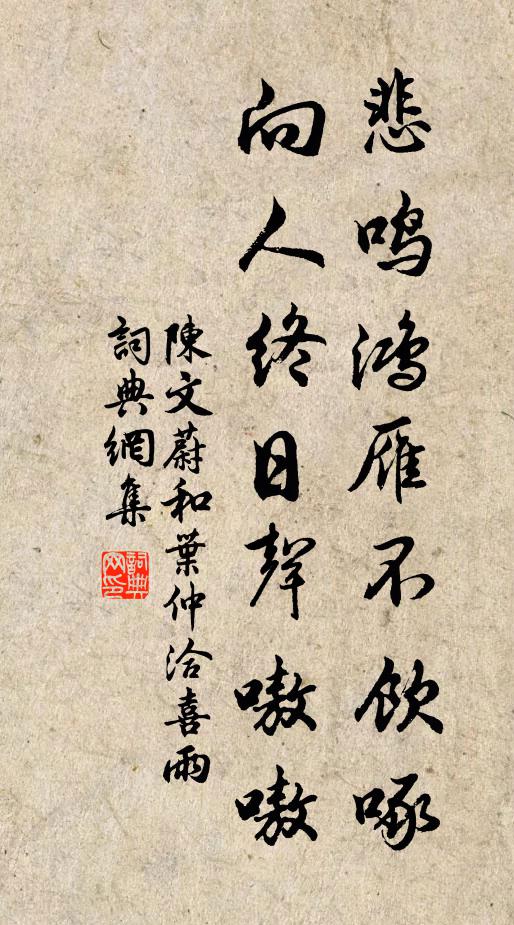 悲鸣鸿雁不饮啄
向人终日声嗷嗷
陳文蔚和葉仲洽喜雨
詞典網集
詞典网印